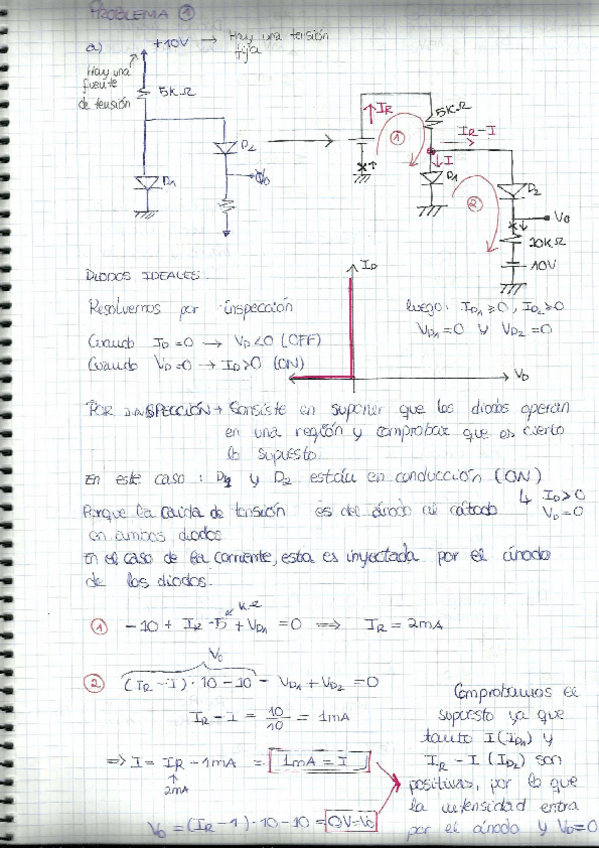 PROBLEMA ①
a)
+10V → Hay una tensión
fija
Hay una
fuente
de tensión
5KΩ
D2
D1
Vo
IR
①
5KΩ
IR-I
I
D1
②
D2
Vo
10KΩ
10V
DIODOS IDEALES.
ID
VD
Resolvemos por inspección
Cuando ID=0 → VD<0 (OFF)
Cuando VD=0 → ID>0 (ON)
luego: ID1≥0, ID2≥0
VD1=0 y VD2=0
POR INSPECCIÓN → Consiste en suponer que los diodos operan
en una región y comprobar que es cierto
lo supuesto.
En este caso: D1 y D2 están en conducción (ON)
↳ ID>0
VD=0
Porque la caída de tensión es del ánodo al cátodo
en ambos diodos
En el caso de la corriente, esta es inyectada por el ánodo
de los diodos.
① -10 + IR·5 + VD1 = 0 ⟹ IR = 2mA
KΩ
Vo
② (IR-I)·10-10 - VD1 + VD2 = 0
IR-I = 10/10 = 1mA
⟹ I = IR - 1mA = 1mA = I
2mA
Vo = (IR-1)·10-10 = 0V=Vo
Comprobamos el
supuesto ya que
tanto I (ID1) y
IR - I (ID2) son
positivas, por lo que
la intensidad entra
por el ánodo y VD=0